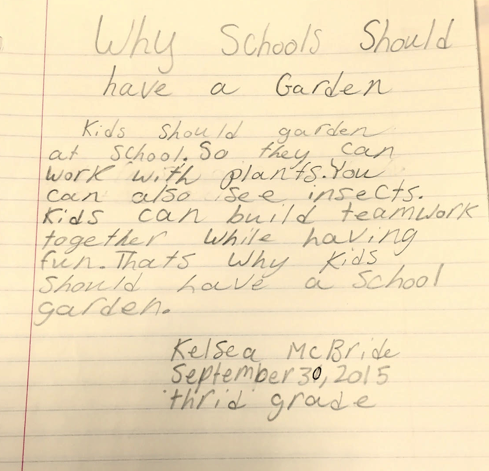 Why Schools Should
have a Garden
Kids should garden
at school. So they can
work with plants. You
can also see insects.
Kids can build teamwork
together while having
fun. Thats why kids
should have a school
garden.
Kelsea McBride
September 30, 2015
thrid grade